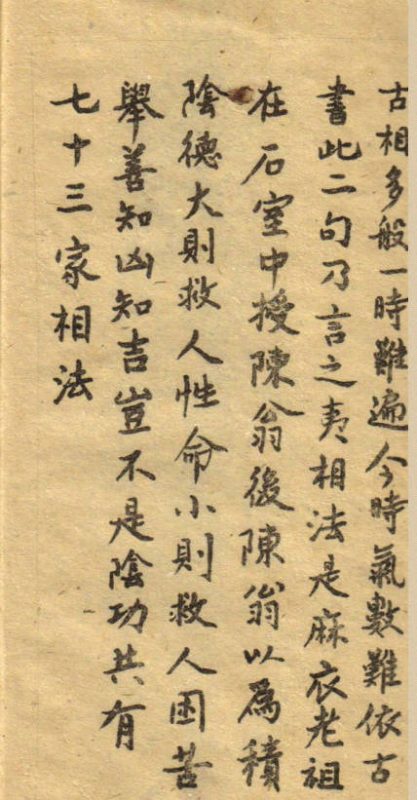 古相多般一時難遍今時氣數難依古
書此二句乃言之夷相法是麻衣老祖
在石室中授陳翁後陳翁以爲積
陰德大則救人性命小則救人困苦
舉善知凶知吉豈不是陰功共有
七十三家相法